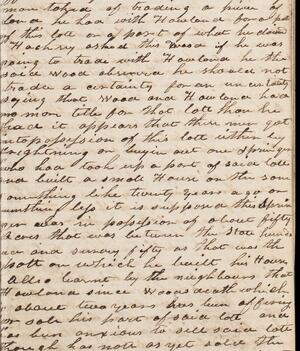 man talked of trading a piece of
land he had with Howland for a part
of this lot or a part of what he claimed
Hachry asked this Wood if he was
going to trade with Howland he the
said Wood observed he should not
trade a certainty for an uncertainty
saying that Wood and Howland had
no more title for that lot than he
had it appears that their ever got
into possession of this lott in the by
frightning or buying out one Springer
who had took up a part of said lott
and built a small House on the same
something like twenty years ago or
unthing less it is supposed this Sprin
ger was in possession of about fifty
Acres that was between the State
and survey fifty as that was the
spott on which he built his House
I also learnt by the neighbours that
Howland since Woods death which
is about two years has been offering
for sale his part of said lott and
has been anxious to sell said lott
though has not as yet sold the